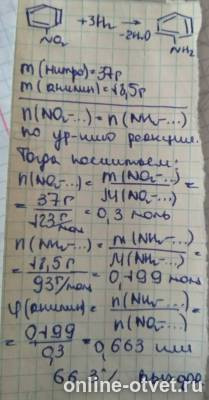 +3H₂ → -2H₂O
NO₂ NH₂
m(нитро)=37г
m(анилин)=18,5г
n(NO₂-...)=n(NH₂-...)
по ур-нию реакции.
Тогда посчитаем:
n(NO₂-...)= m(NO₂-...) / M(NO₂-...) =
= 37г / 123г/моль = 0,3 моль
n(NH₂-...)= m(NH₂-...) / M(NH₂-...) =
= 18,5г / 93г/моль = 0,199 моль
φ(анилин)= n(NH₂-...) / n(NO₂-...) =
= 0,199 / 0,3 = 0,663 или
66,3%
online-otvet.ru